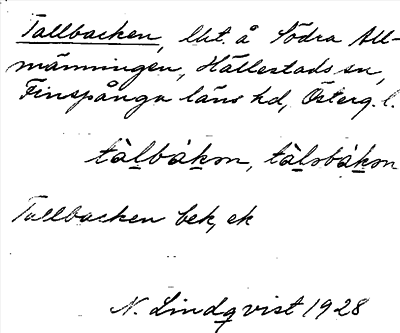 Tallbacken, lht. å Södra All-
männingen, Hällestads sn,
Finspånga läns hd, Österg. l.
tàlbákən, tàlsbákən
Tallbacken bek, ek
N. Lindqvist 1928